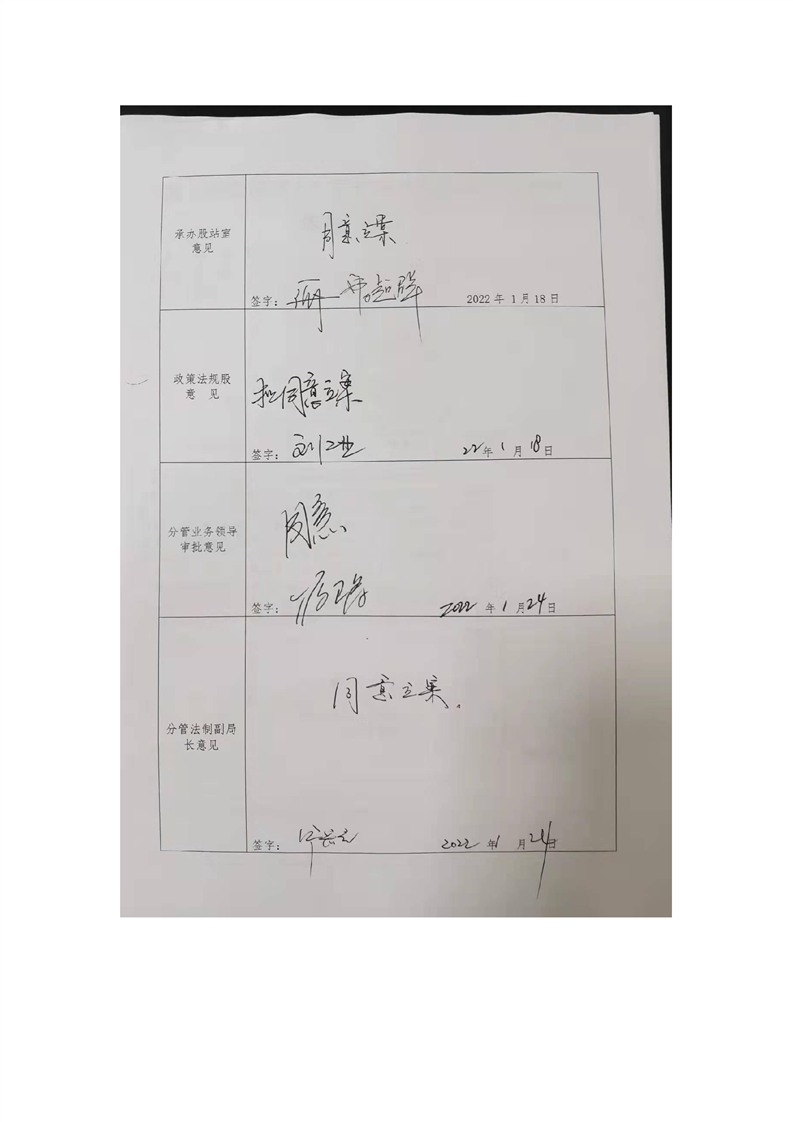 承办股站室
意见
同意立案
签字：
2022 年 1 月 18 日
政策法规股
意 见
拟同意立案
签字： 刘工业
22 年 1 月 18 日
分管业务领导
审批意见
同意
签字：
2022 年 1 月 24 日
分管法制副局
长意见
同意立案。
签字：
2022 年 1 月 24 日